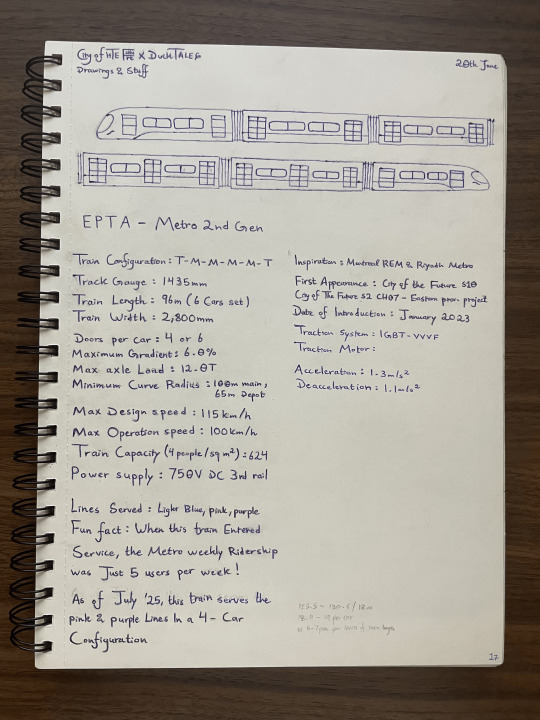 City of HTE X DuckTALES
Drawings & Stuff
20th June
EPTA - Metro 2nd Gen
Train Configuration : T-M-M-M-M-T
Track Gauge : 1435mm
Train Length : 96m (6 Cars set)
Train Width : 2,800mm
Doors per car : 4 or 6
Maximum Gradient : 6.0%
Max axle Load : 12.0T
Minimum Curve Radius : 100m main,
65m Depot
Max Design speed : 115 km/h
Max Operation speed : 100 km/h
Train Capacity (4 people/sq m²) : 624
Power supply : 750V DC 3rd rail
Lines Served : Light Blue, pink, purple
Fun fact : When this train Entered
Service, the Metro weekly Ridership
was Just 5 users per week!
As of July '25, this train serves the
pink & purple Lines In a 4-Car
Configuration
Inspiration : Montreal REM & Riyadh Metro
First Appearance : City of the Future S1
City of The Future S2 CH07 - Eastern project
Date of Introduction : January 2023
Traction System : IGBT-VVVF
Traction Motor :
Acceleration : 1.3m/s²
Deacceleration : 1.1m/s²
17